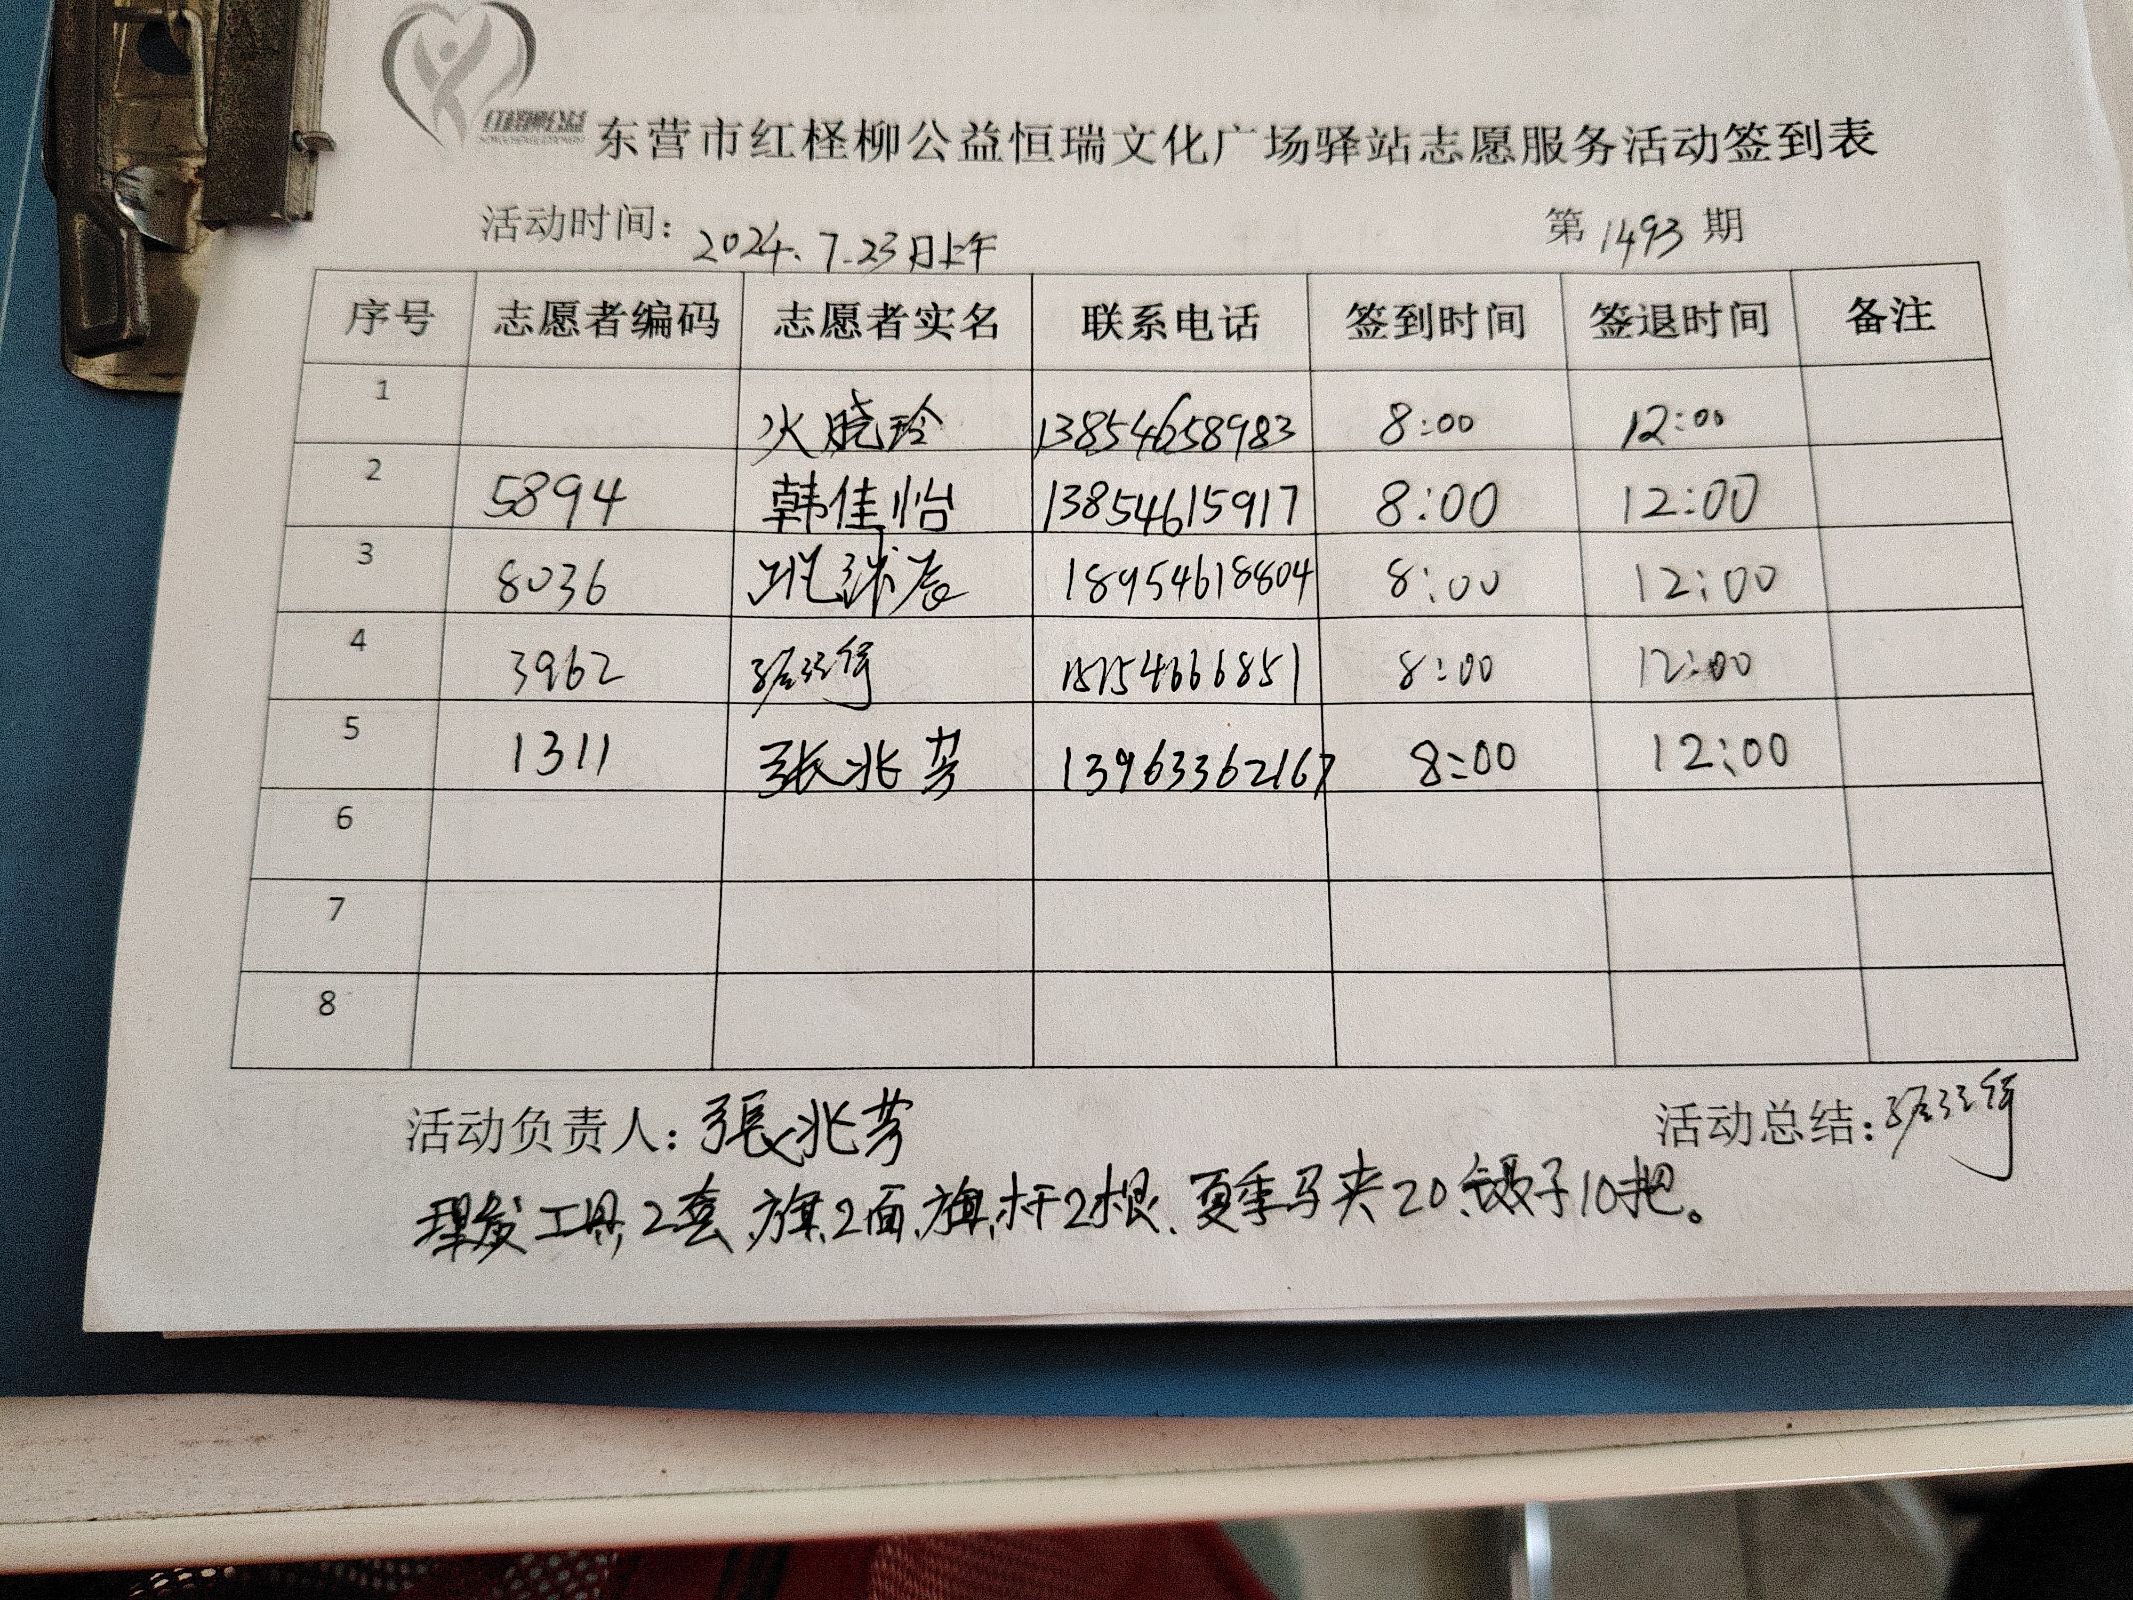 红柽柳公益
东营市红柽柳公益恒瑞文化广场驿站志愿服务活动签到表
活动时间: 2024.7.23日上午 第1493期
序号 志愿者编码 志愿者实名 联系电话 签到时间 签退时间 备注
1 火晓玲 13854658983 8:00 12:00
2 5894 韩佳怡 13854615917 8:00 12:00
3 8036 18954618804 8:00 12:00
4 3962 15154666851 8:00 12:00
5 1311 张兆芳 13963362167 8:00 12:00
6
7
8
活动负责人: 張兆芳 活动总结:
理发工具2套、旗2面、旗杆2根、夏季马夹20、镊子10把。